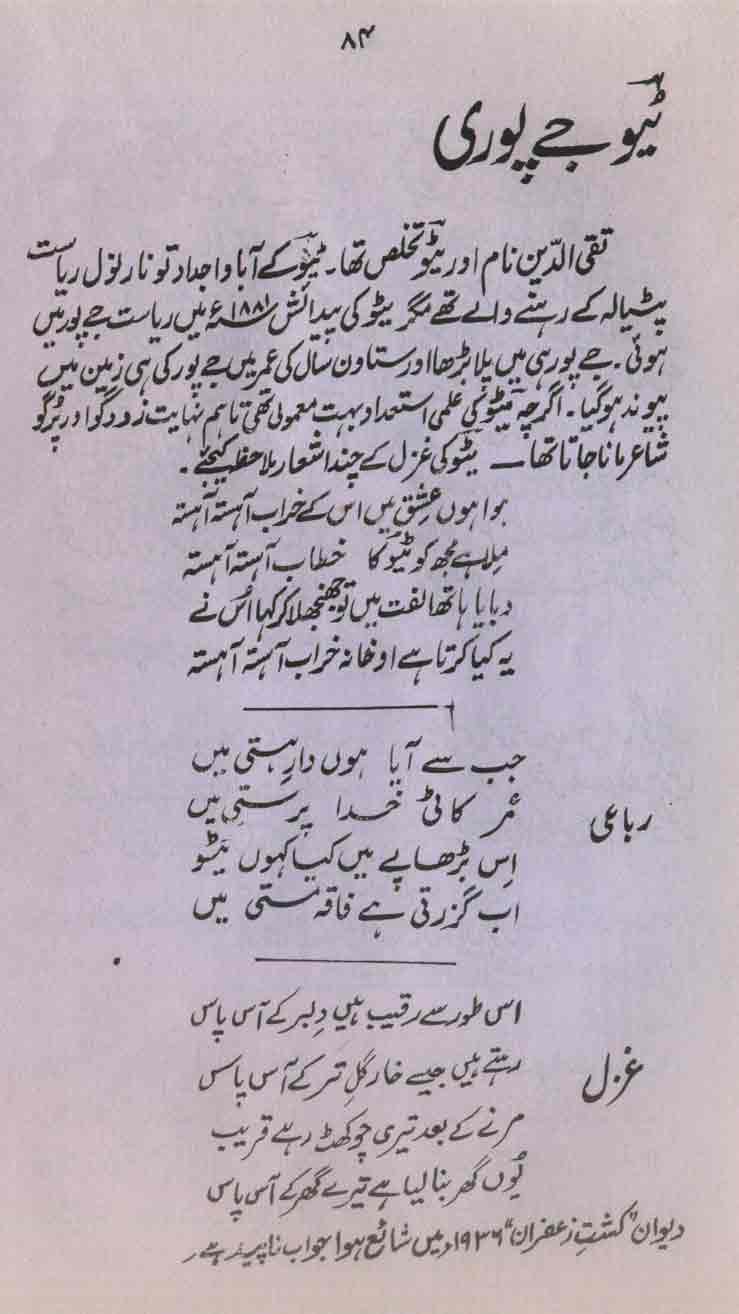 ۸۴
ٹیوؔ جے پوری
تقی الدّین نام اور ٹیوؔ تخلص تھا۔ ٹیوؔ کے آبا و اجداد تو نارنول ریاست
پٹیالہ کے رہنے والے تھے مگر ٹیو کی پیدائش ۱۸۸۱ء میں ریاست جے پور میں
ہوئی۔ جے پور ہی میں پلا بڑھا اور ستاون سال کی عمر میں جے پور کی ہی زمین میں
پیوند ہو گیا۔ اگرچہ ٹیوؔ کی علمی استعداد بہت معمولی تھی تاہم نہایت زود گو اور پُر گو
شاعر مانا جاتا تھا — ٹیو کی غزل کے چند اشعار ملاحظہ کیجئے۔
ہوا ہوں عشق میں اس کے خراب آہستہ آہستہ
مِلا ہے مجھ کو ٹیوؔ کا خطاب آہستہ آہستہ
دبایا ہاتھ الفت میں تو جھنجھلا کر کہا اُس نے
یہ کیا کرتا ہے او خانہ خراب آہستہ آہستہ
جب سے آیا ہوں دارِ ہستی میں
رباعی
عُمر کاٹی خدا پرستی میں
اِس بڑھاپے میں کیا کہوں ٹیٹو
اب گزرتی ہے فاقہ مستی میں
اس طور سے رقیب ہیں دِلبر کے آس پاس
غزل
رہتے ہیں جیسے خار گلِ تر کے آس پاس
مرنے کے بعد تیری چوکھٹ رہے قریب
یُوں گھر بنا لیا ہے تیرے گھر کے آس پاس
دیوان "کشتِ زعفران" ۱۹۳۶ء میں شائع ہوا جو اب ناپید ہے۔